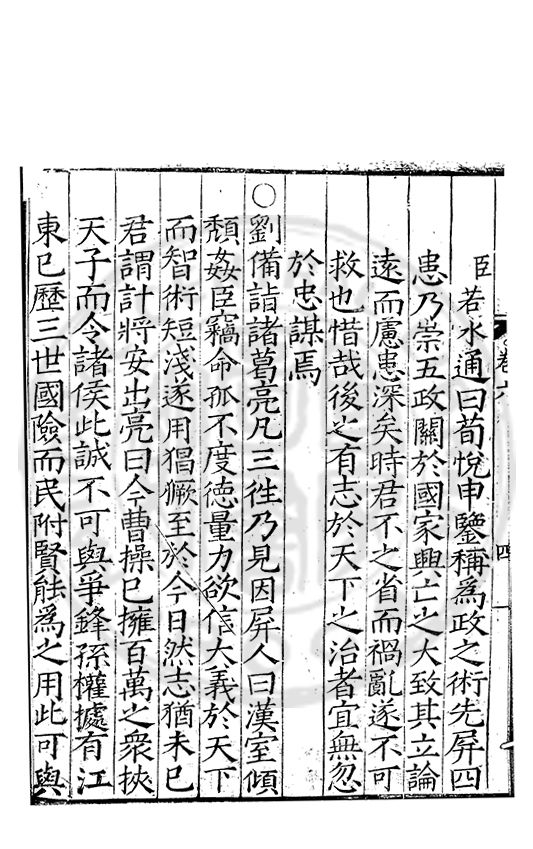 臣若水通曰荀悅申鑒稱爲政之術先屏四
患乃崇五政關於國家興亡之大致其立論
遠而慮患深矣時君不之省而禍亂遂不可
救也惜哉後之有志於天下之治者宜無忽
於忠謀焉
○劉備詣諸葛亮凡三往乃見因屏人曰漢室傾
頹姦臣竊命孤不度德量力欲信大義於天下
而智術短淺遂用猖獗至於今日然志猶未已
君謂計將安出亮曰今曹操已擁百萬之衆挾
天子而令諸侯此誠不可與爭鋒孫權據有江
東已歷三世國險而民附賢能爲之用此可與
卷六
四